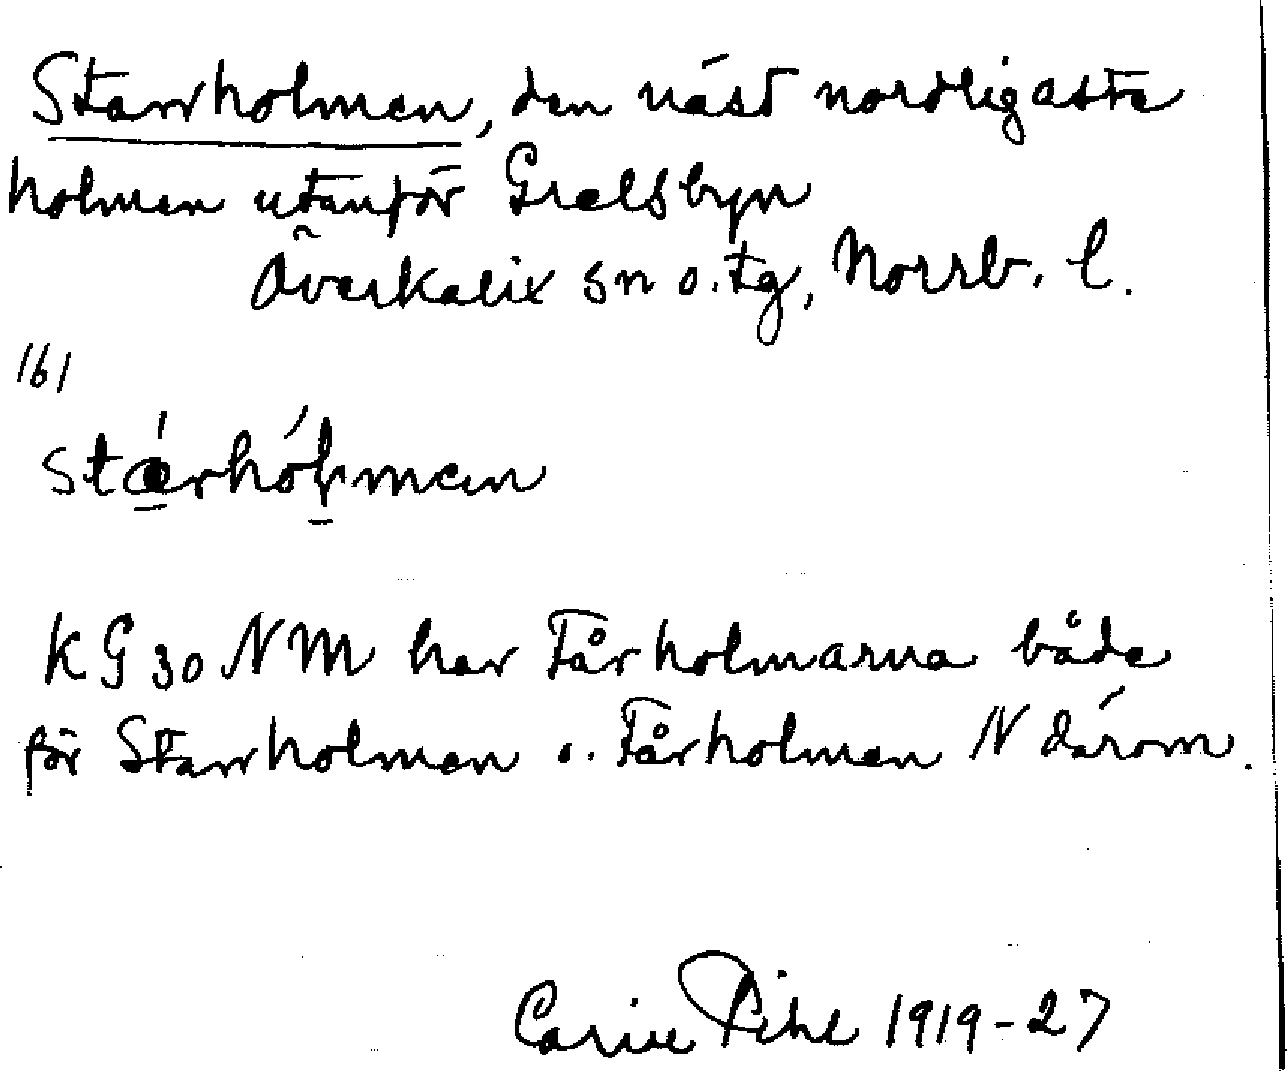 Starrholmen, den näst nordligaste
holmen utanför Grelsbyn
Överkalix sn o. tg, Norrb. l.
161
stárhólmen
KG 30 NM har Fårholmarna både
för Starrholmen o. Fårholmen N därom.
Carin Pihl 1919-27